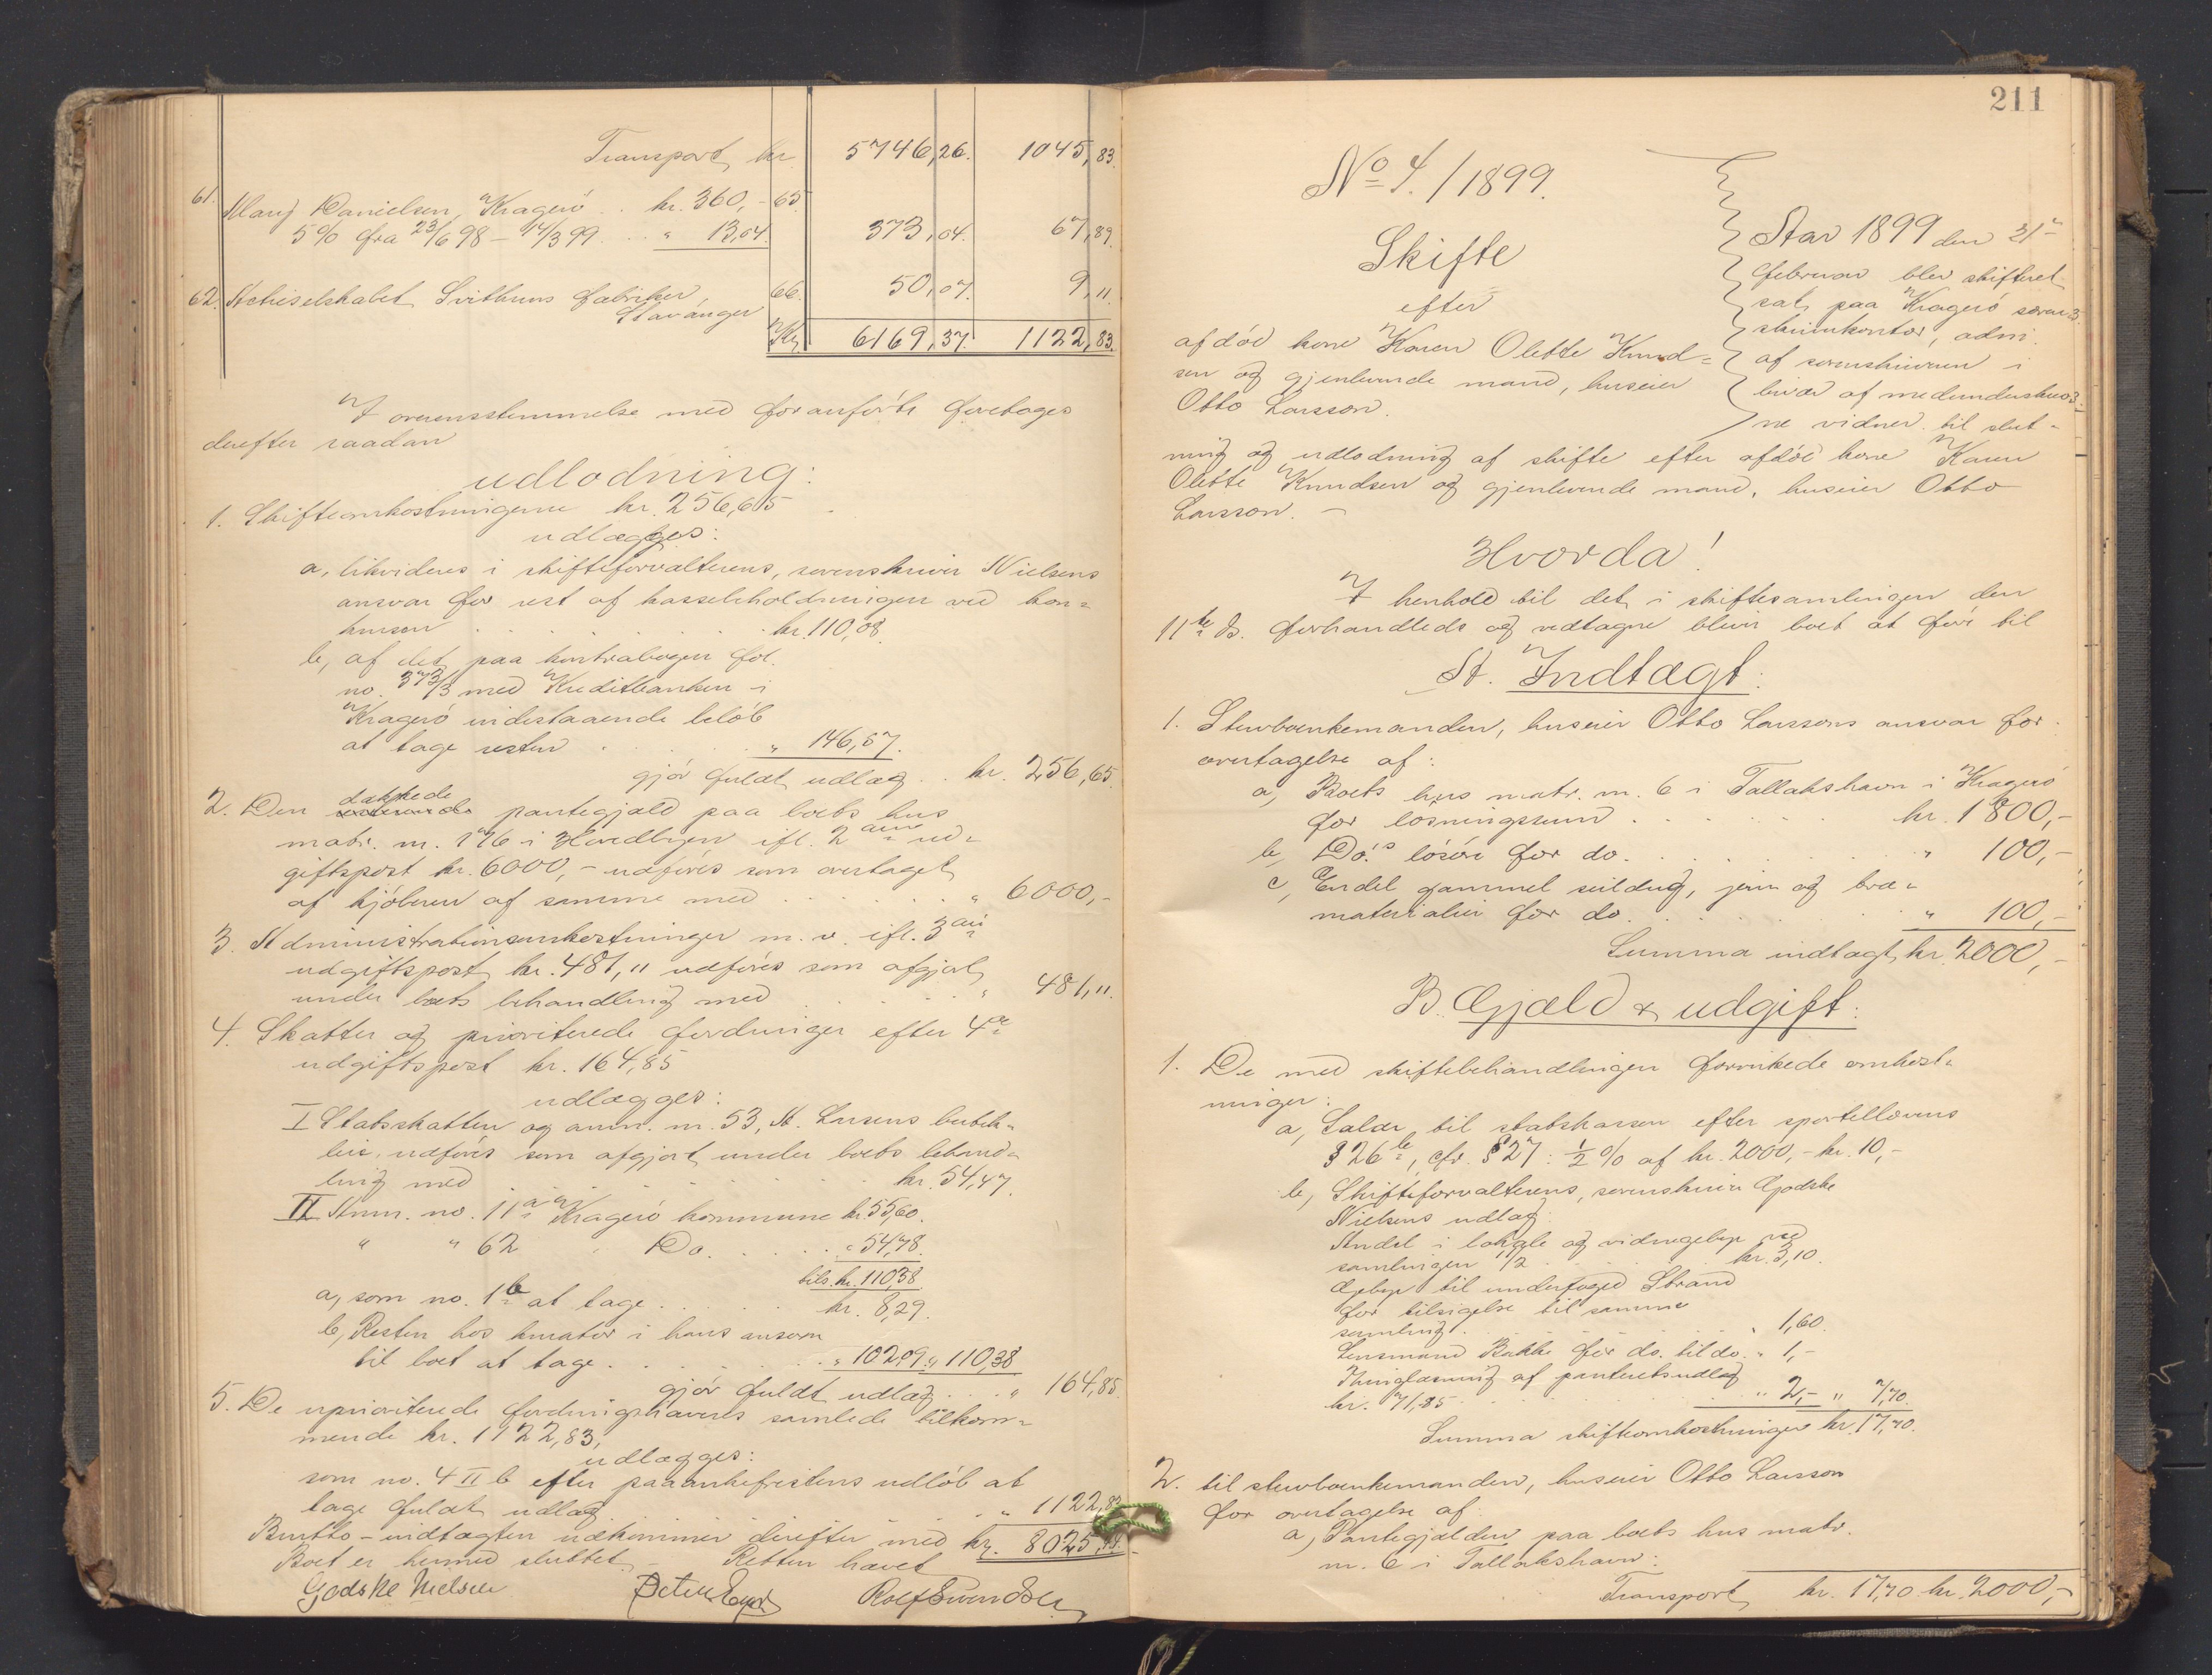 Transport kr. 5746,26. 1045,83.
61. Marj Danielsen, Kragerö . . kr. 360,- 65.
5% fra 23/6 98 - 14/3 99 . . . " 13,04. 373,04. 67,89.
62. Actieselskabet Svithuns fabriker, 66. 50,07. 9,11.
Stavanger
Kr. 6169,37. 1122,83.
I overensstemmelse med foranförte foretages
derefter saadan
udlodning:
1. Skifteomkostningerne kr. 256,65
udlægges:
a, likvideres i skifteforvalterens, sorenskriver Nielsens
ansvar for rest af kassebeholdningen ved kon=
kursen . . . . . . kr. 110,08.
b, af det paa kontrabogen fol.
no. 373/3 med Kreditbanken i
Kragerö indestaaende belöb
at tage resten . . . . " 146,57.
gjör fuldt udlæg . . kr. 256,65.
2. Den dækkede pantegjæld paa boets hus
matr. nr. 176 i Hovedbyen ifl. 2den ud=
giftspost kr. 6000,- udföres som overtaget
af kjöberen af samme med . . . . . . " 6000,-
3. Administrationsomkostninger m. v. ifl. 3die
udgiftspost kr. 481,11 udföres som afgjort
under boets behandling med . . . . " 481,11.
4. Skatter og prioriterede fordringer efter 4de
udgiftspost kr. 164,85
udlægges:
I Statsskatten og anm. nr. 53, A. Larsens
udföres som afgjort under boets behand=
ling med . . . . . . . kr. 54,47.
II Anm. no. 11a Kragerö kommune kr. 55,60.
" " 62 Do. . . . . " 54,78.
tils. kr. 110,38
a, som no. 1b at tage . . . . . kr. 8,29.
b, Resten hos kurator i hans ansvar
til boet at tage . . . . . . " 102,09 " 110,38
gjör fuldt udlæg . . . " 164,85.
5. De uprioriterede fordringshaveres samlede tilkom=
mende kr. 1122,83,
udlægges:
som no. 4 II b efter paaankefristens udlöb at
tage fuldt udlæg . . . . . . " 1122,83
Brutto-indtægten udkommer derefter med kr. 8025,44.
Boet er hermed sluttet. - Retten hævet
Godske Nielsen Rolf Svendsen
211
No 4. / 1899.
Skifte
efter
afdöd kone Karen Olette Knud=
sen og gjenlevende mand, huseier
Otto Larsson.
Aar 1899 den 21de
februar blev skifteret
sat paa Kragerö soren=
skriverkontor, adm.
af sorenskriveren i
overvær af medunderskrev=
ne vidner til slut=
ning og udlodning af skifte efter afdöd kone Karen
Olette Knudsen og gjenlevende mand, huseier Otto
Larsson. -
Hvorda!
I henhold til det i skiftesamlingen den
11te ds. forhandlede og vedtagne bliver boet at före til
A. Indtægt:
1. Stervboenkemanden, huseier Otto Larssons ansvar for
overtagelse af:
a, Boets hus matr. nr. 6 i Tallakshavn i Kragerö
for lösningssum . . . . . kr. 1800,-
b, Do.s lösöre for do. . . . . . . " 100,-
c, Endel gammel seildug, jern og træ=
materialier for do. . . . . . " 100,-
Summa indtægt kr. 2000,-
B. Gjæld & udgift:
1. De med skiftebehandlingen forvirkede omkost=
ninger:
a, Salær til statskassen efter sportellovens
§ 26b, cfr. § 27: ½ % af kr. 2000,- kr. 10,-
b, Skifteforvalterens, sorenskriver Godske
Nielsens udlæg:
Andel i lokale og vidnegebyr ved
samlingen 11/2 . . . . . . kr. 3,10.
Gebyr til underfoged Strand
for tilsigelse til samme
samling . . . . . . " 1,60.
Lensmand Bakke for do. til do. " 1,-
Thinglæsning af panteretsudlæg
kr. 71,85 . . . . . . " 2,- " 7,70.
Summa skifteomkostninger kr. 17,70.
2. til stervboenkemanden, huseier Otto Larsson
for overtagelse af:
a, Pantegjælden paa boets hus matr.
nr. 6 i Tallakshavn:
Transport kr. 17,70 kr. 2000,-